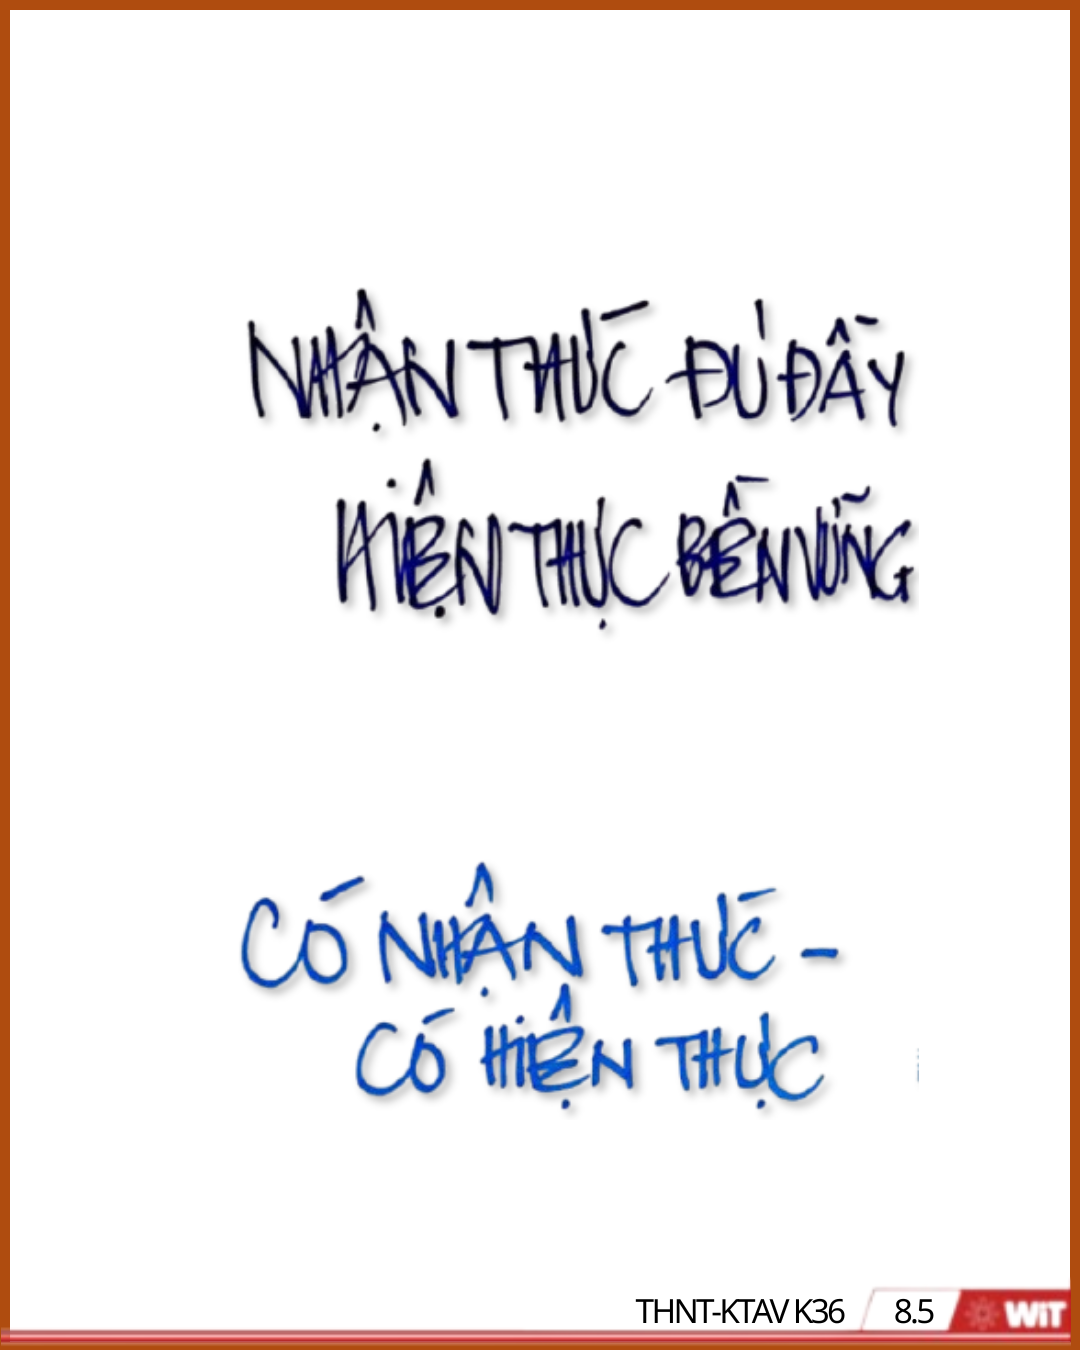 NHẬN THỨC ĐỦ ĐẦY
HIỆN THỰC BỀN VỮNG
CÓ NHẬN THỨC -
CÓ HIỆN THỰC
THNT-KTAV K36 8.5 WiT